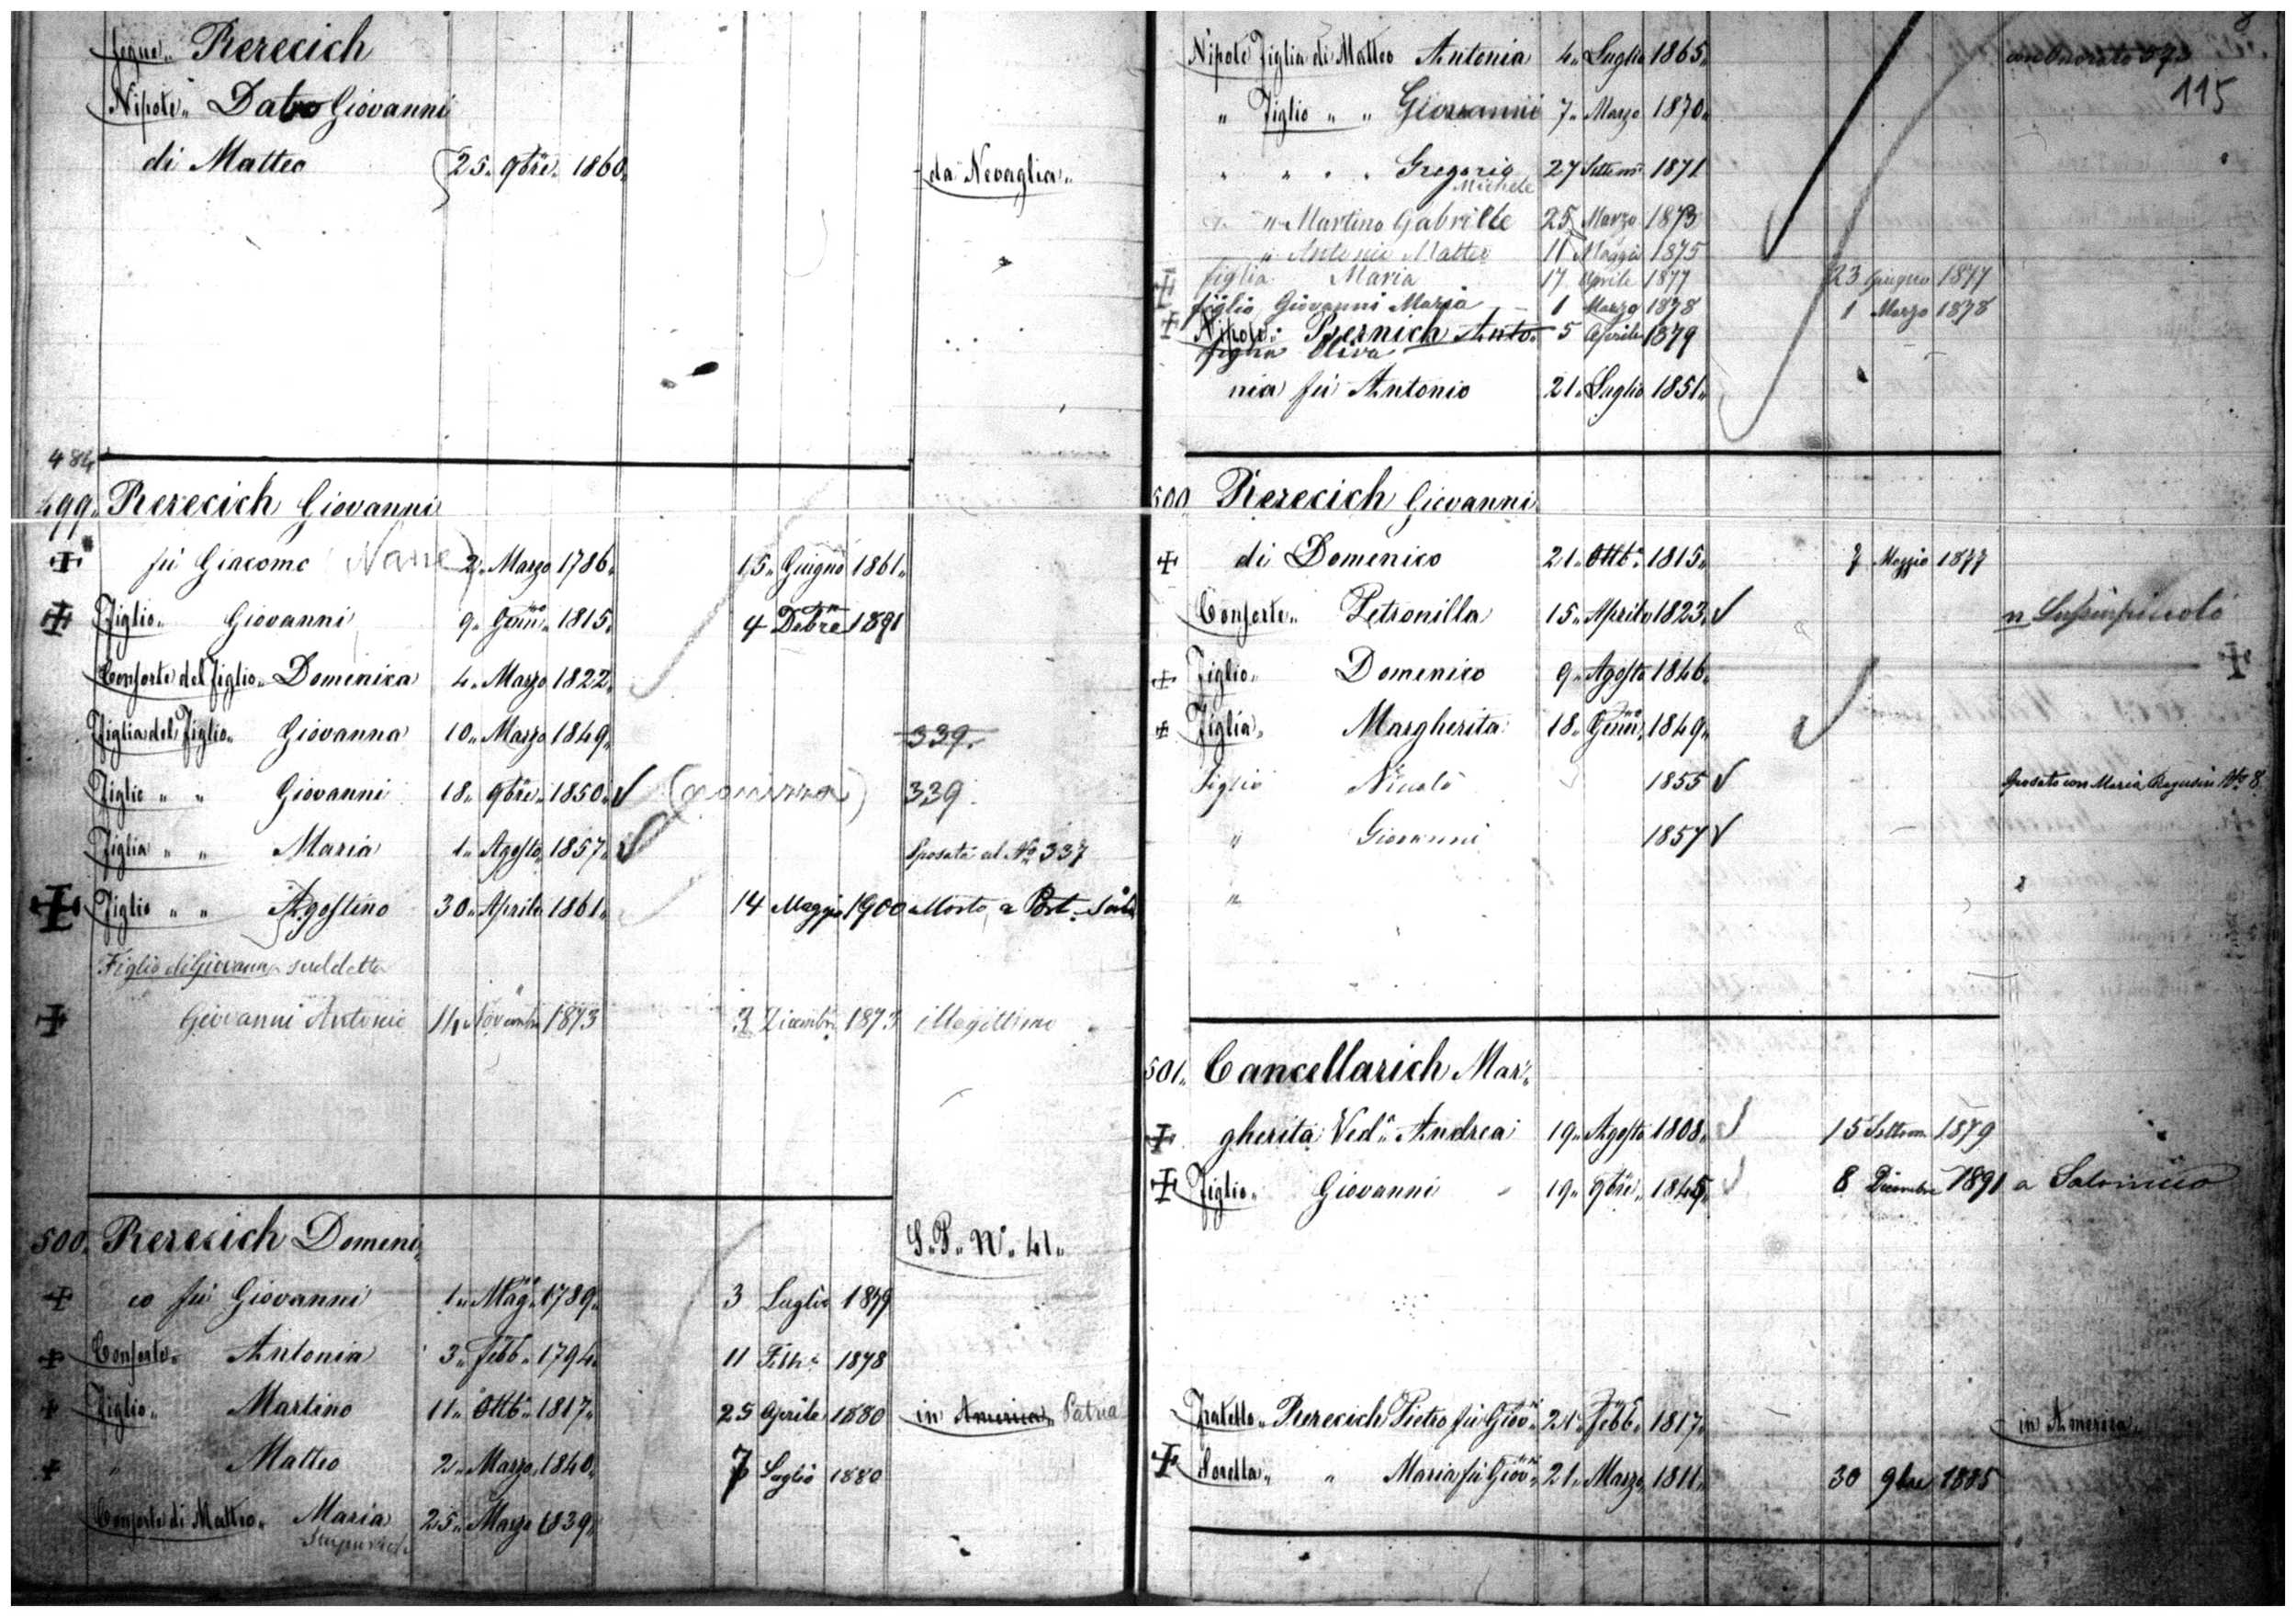 segue„ Rerecich
Nipote„ Dabro Giovanni
di Matteo 25„ 9bre„ 1860„ da Nevaglia„
484
499„ Rerecich Giovanni
✠ fù Giacomo (Nane) 2„ Marzo 1786„ 15„ Giugno 1861„
✠ Figlio„ Giovanni 9„ Genn.º 1815„ 4 Dcbre 1891
Consorte del figlio„ Domenica 4„ Marzo 1822„
Figlia del Figlio„ Giovanna 10„ Marzo 1849„ 339„
Figlio „ „ Giovanni 18„ 9bre„ 1850„ ✓ 339
Figlia „ „ Maria 1„ Agosto 1857„ ✓ Sposata al No 337
✠ Figlio „ „ Agostino 30„ Aprile 1861„ 14 Maggio 1900 Morto a Port-Said
Figlio di Giovanna suddetta
✠ Giovanni Antonio 14 Novembre 1873 3 Dicembre 1873 illegittimo
500„ Rerecich Domeni„ S„P„ No„ 41„
✠ co fù Giovanni 1„ Mag.º 1789„ 3 Luglio 1879
✠ Consorte„ Antonia 3„ Febb.º 1794„ 11 Febb.º 1878
✠ Figlio„ Martino 11„ Ottb.e 1817„ 25 Aprile 1880 in America„ Patria
✠ „ Matteo 2„ Marzo 1840„ 7 Luglio 1880
Consorte di Matteo„ Maria 25„ Marzo 1839„
115
Nipote Figlia di Matteo Antonia 4„ Luglio 1865„
„ Figlio „ „ Giovanni 7„ Marzo 1870„
„ „ „ „ Gregorio 27 Settem 1871
Michele
„ Martino Gabrielle 25 Marzo 1873
„ Antonio Matteo 11 Maggio 1875
✠ figlia Maria 17 Aprile 1877 23 Giugno 1877
✠ figlio Giovanni Maria 1 Marzo 1878 1 Marzo 1878
Nipote„ Rernich Anto„ 5 Aprile 1879
figlia Oliva
nia fù Antonio 21„ Luglio 1851„
500 Rerecich Giovanni
✠ di Domenico 21„ Ottb.e 1815„ 7 Maggio 1877
Consorte„ Petronilla 15„ Aprile 1823„ ✓ n Lussinpiccolo
✠ Figlio„ Domenico 9„ Agosto 1846„ ✠
✠ Figlia„ Margherita 18„ Genn.º 1849„
Figlio Nicolò 1855 ✓ Sposato con Maria Ragusin No 8
„ Giovanni 1857 ✓
„
501„ Cancellarich Mar„
✠ gherita Ved.a Andrea 19„ Agosto 1808„ ✓ 15 Settem 1879
✠ Figlio„ Giovanni 19„ 9bre„ 1845„ ✓ 8 Dicembre 1891 a Salonicco
Fratello„ Rerecich Pietro fù Giov.ni 24„ Febb.º 1817„ in America„
✠ Sorella„ „ Maria fù Giov.ni 21„ Marzo 1811„ 30 9bre 1885